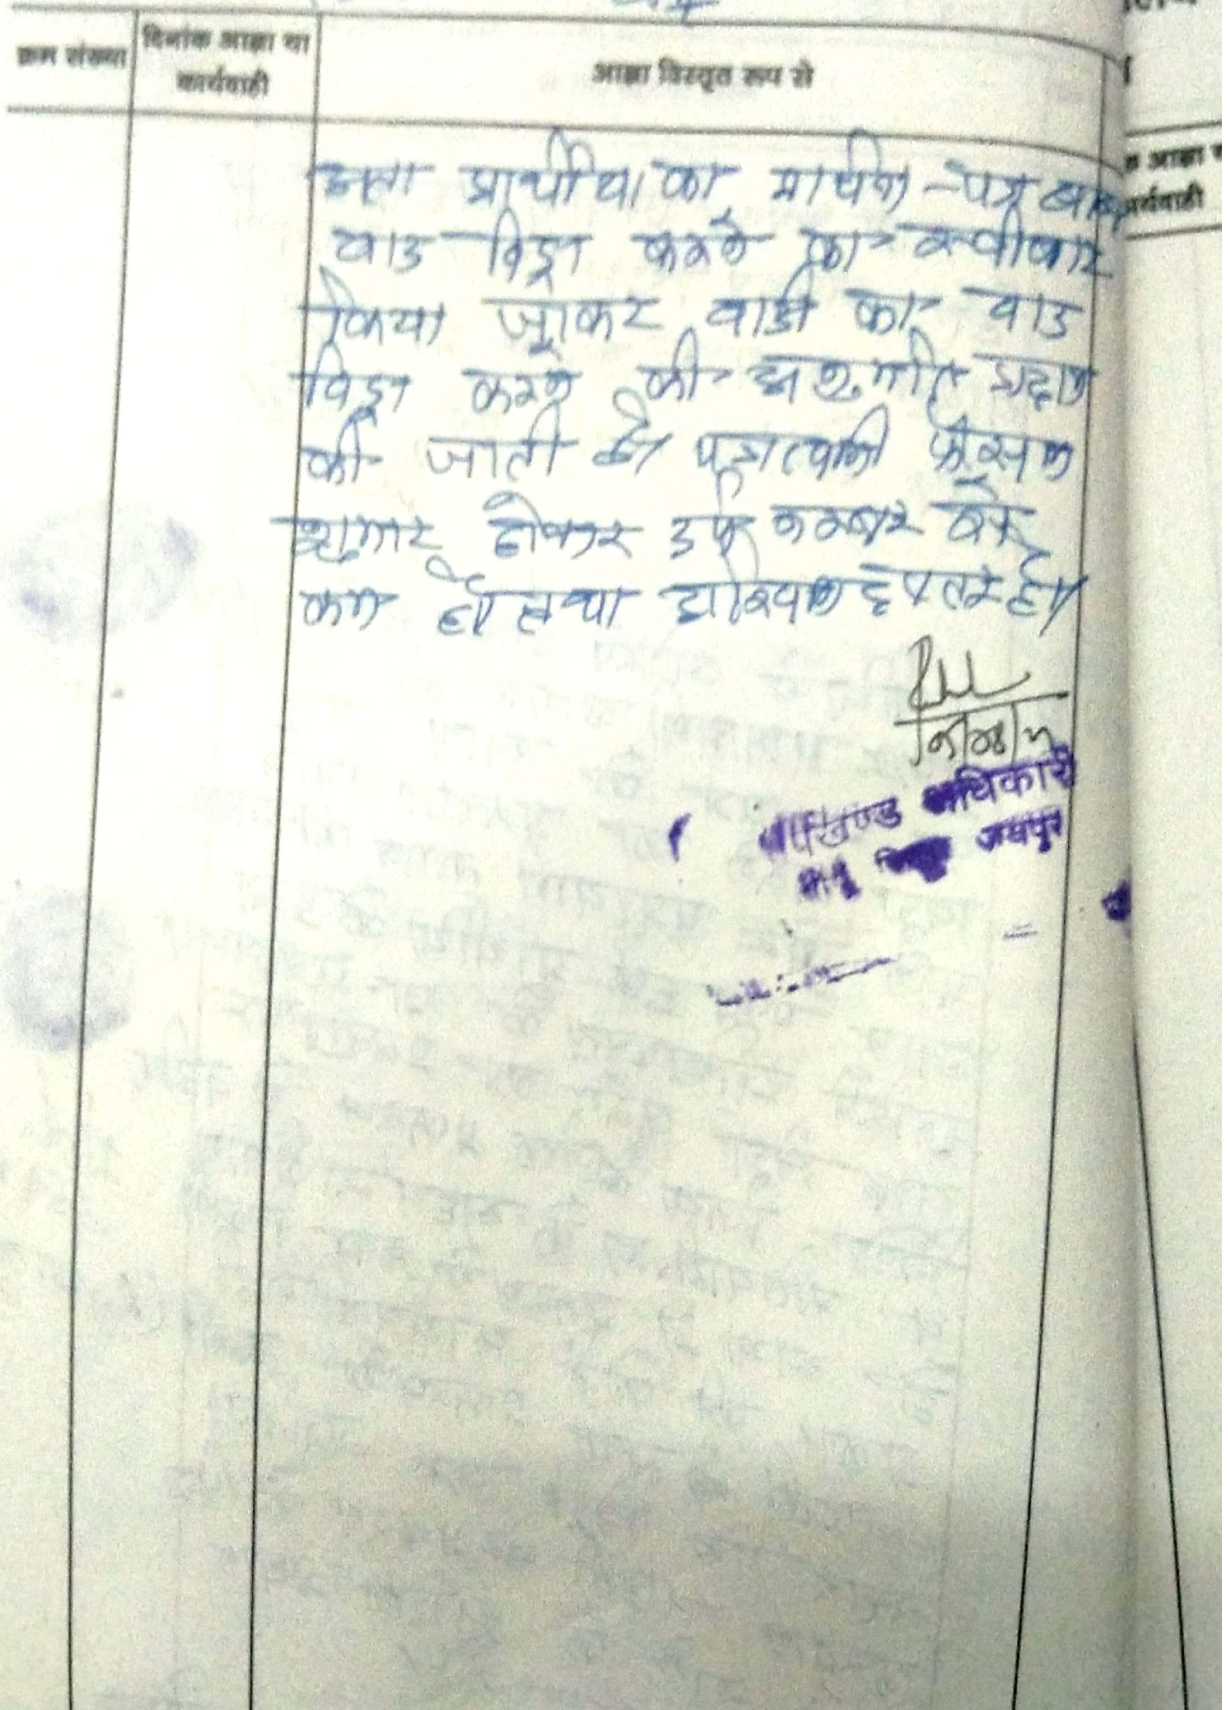 क्रम संख्या
दिनांक आज्ञा या
कार्यवाही
आज्ञा विस्तृत रूप से
अतः प्रार्थीया का प्रार्थना-पत्र बाबत्
वाद विड्रा करने का स्वीकार
किया जाकर वादी को वाद
विड्रा करने की अनुमति प्रदान
की जाती है। पत्रावली फैसल
शुमार होकर नम्बर से
कम हो तथा दाखिल दफ्तर हो।
अधिकारी
जयपुर
आज्ञा
कार्यवाही